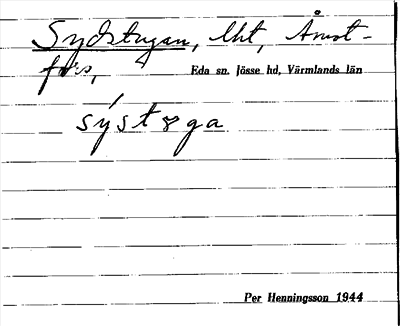 Sydstugan, lht, Åmot-
fors,
Eda sn. Jösse hd, Värmlands län
sýstɷga
Per Henningsson 1944